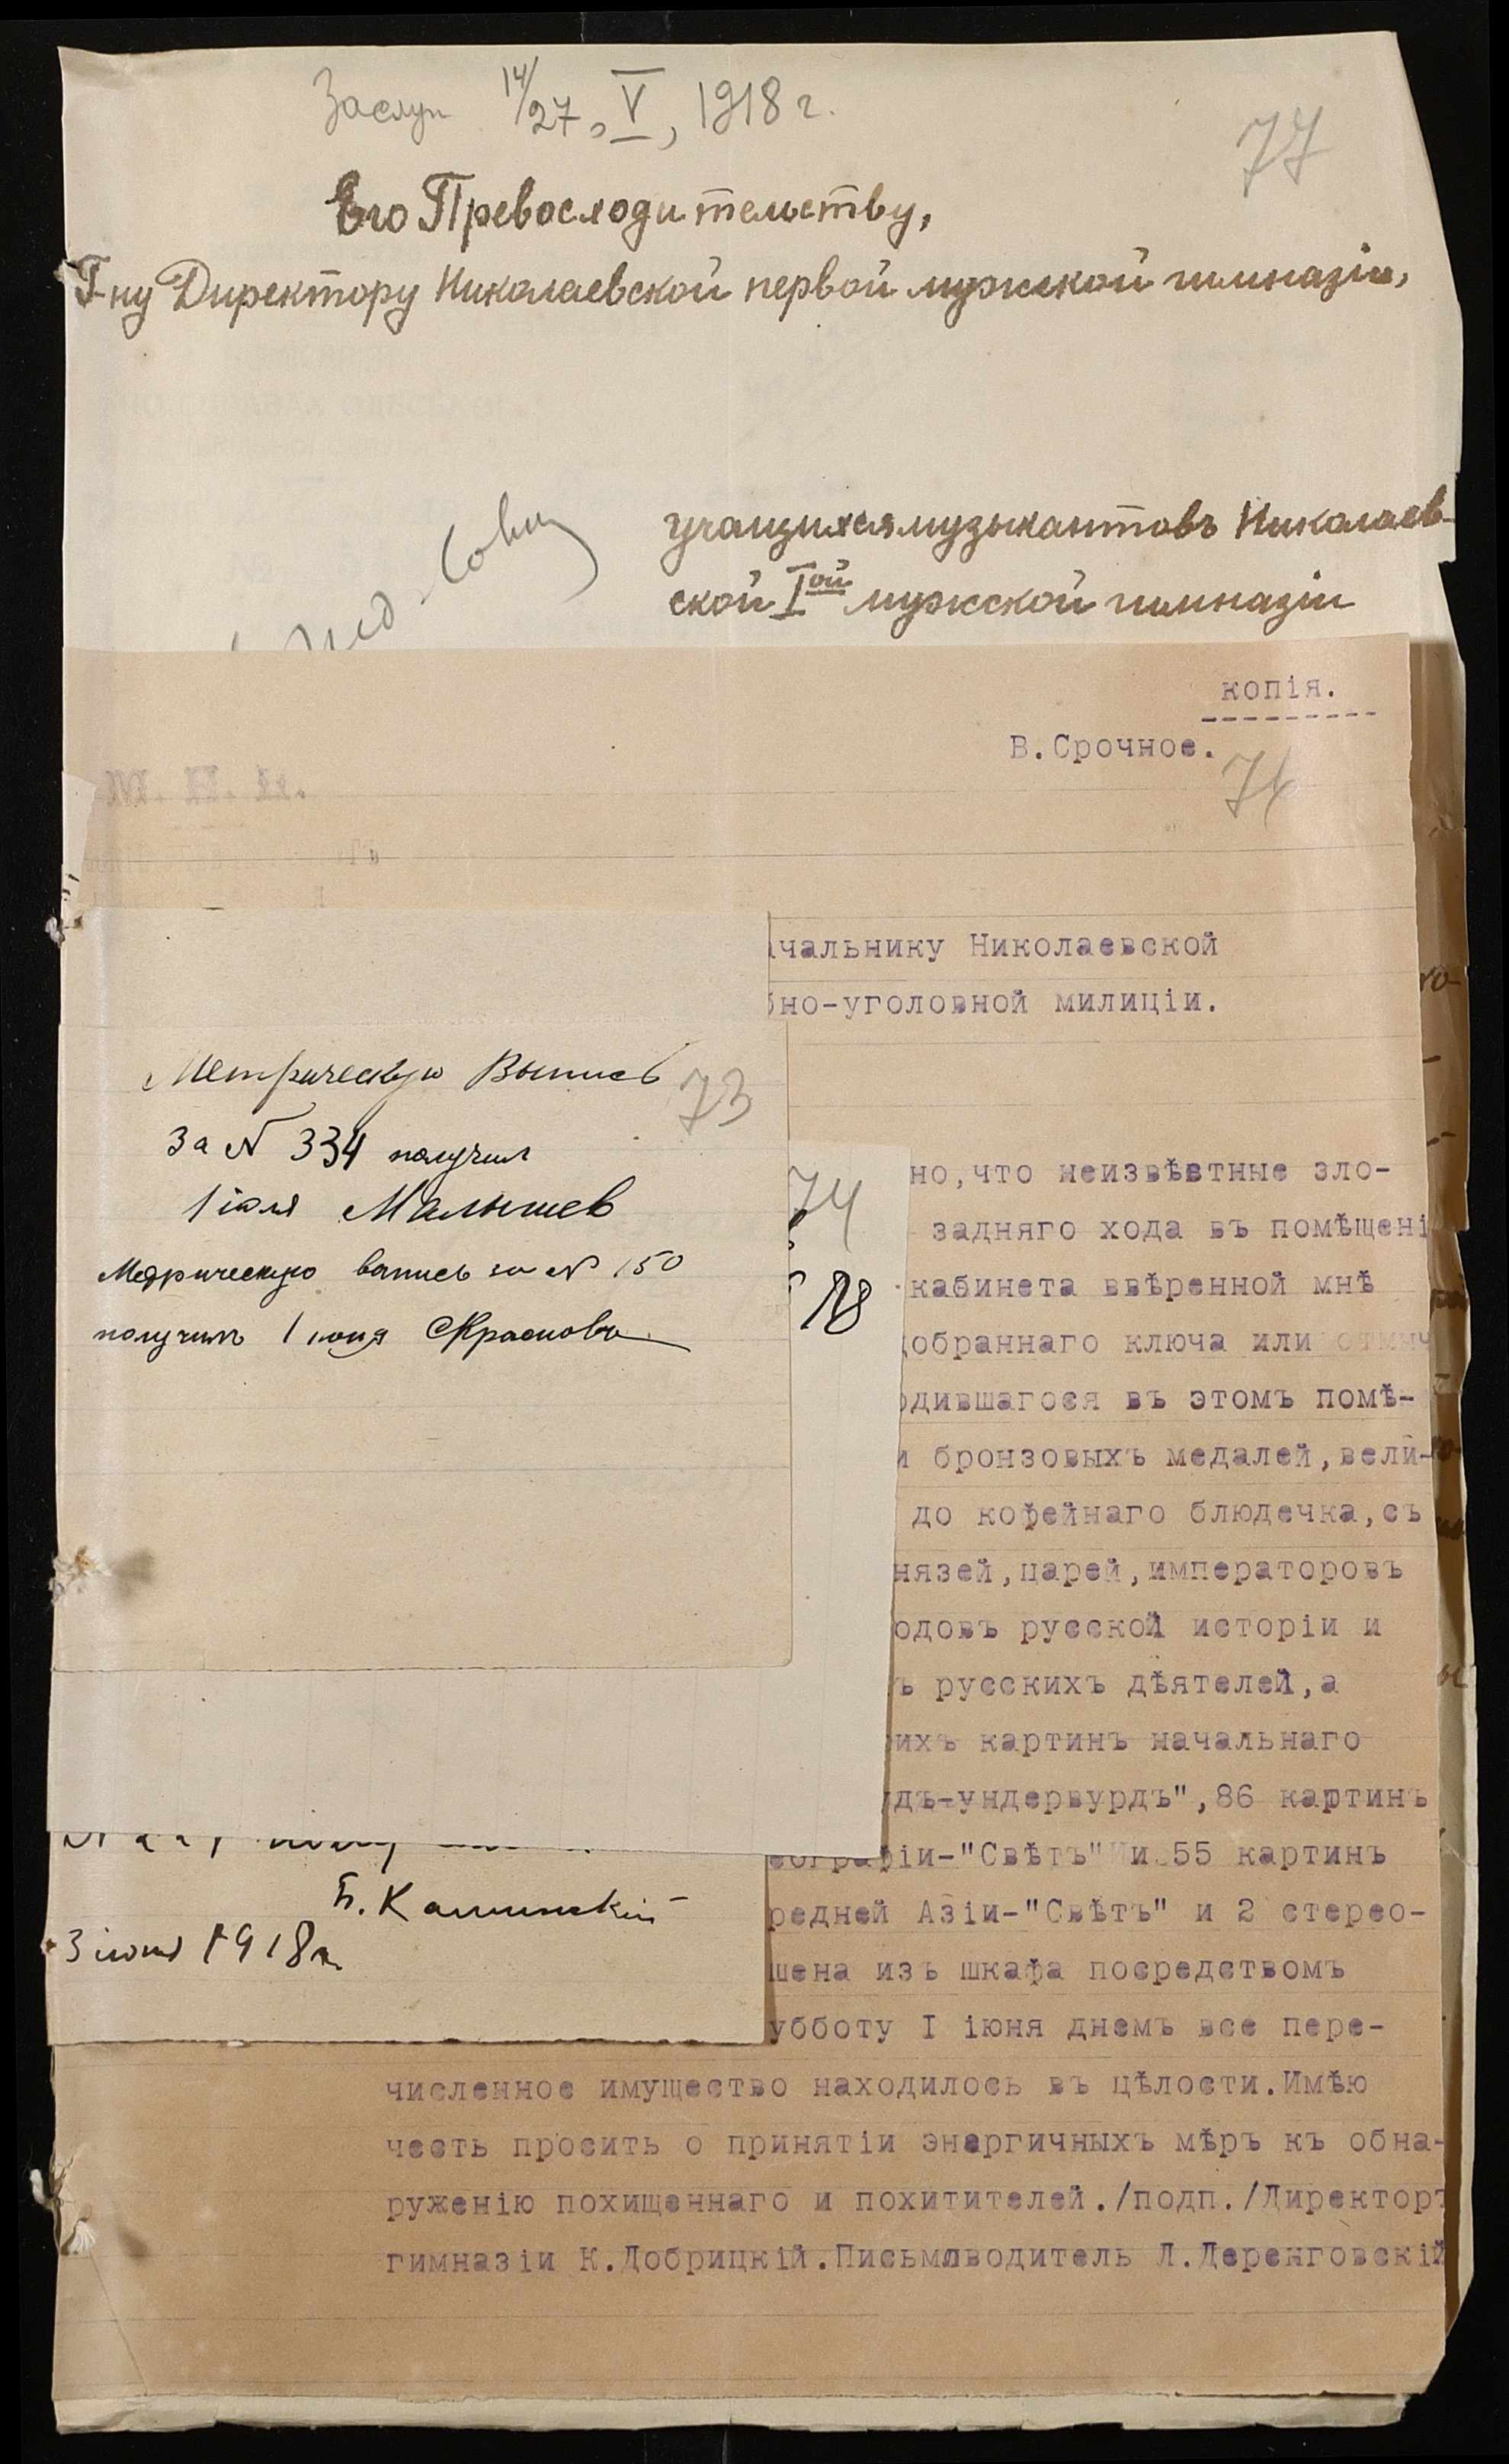 Заслуш 14/27, V, 1918 г.
77
Его Превосходительству,
Г-ну Директору Николаевской первой мужской гимназіи,
учащихся музыкантовъ Николаев-
ской Iой мужской гимназіи
копія.
В.Срочное.
76
М. Н. П.
ачальнику Николаевской
но-уголовной милиціи.
Метрическую Выпись
73
За № 334 получил
1 іюля Малышев
Метрическую выпись за № 150
получилъ 1 іюня Краснова
74
но,что неизвѣстные зло-
задняго хода въ помѣщені
кабинета ввѣренной мнѣ
добраннаго ключа или отмыч
одившагося въ этомъ помѣ-
и бронзовыхъ медалей,вели-
до кофейнаго блюдечка,съ
нязей,царей,императоровъ
одовъ русской исторіи и
ъ русскихъ дѣятелей,а
ихъ картинъ начальнаго
дъ-ундервурдъ",86 картинъ
еографіи-"Свѣтъ" и 55 картинъ
редней Азіи-"Свѣтъ" и 2 стерео-
шена изъ шкафа посредствомъ
убботу I іюня днемъ все пере-
Б. Калинскій
3 іюня 1918 г.
численное имущество находилось въ цѣлости.Имѣю
честь просить о принятіи энергичныхъ мѣръ къ обна-
руженію похищеннаго и похитителей./подп./Директоръ
гимназіи К.Добрицкій.Письмоводитель Л.Деренговскій